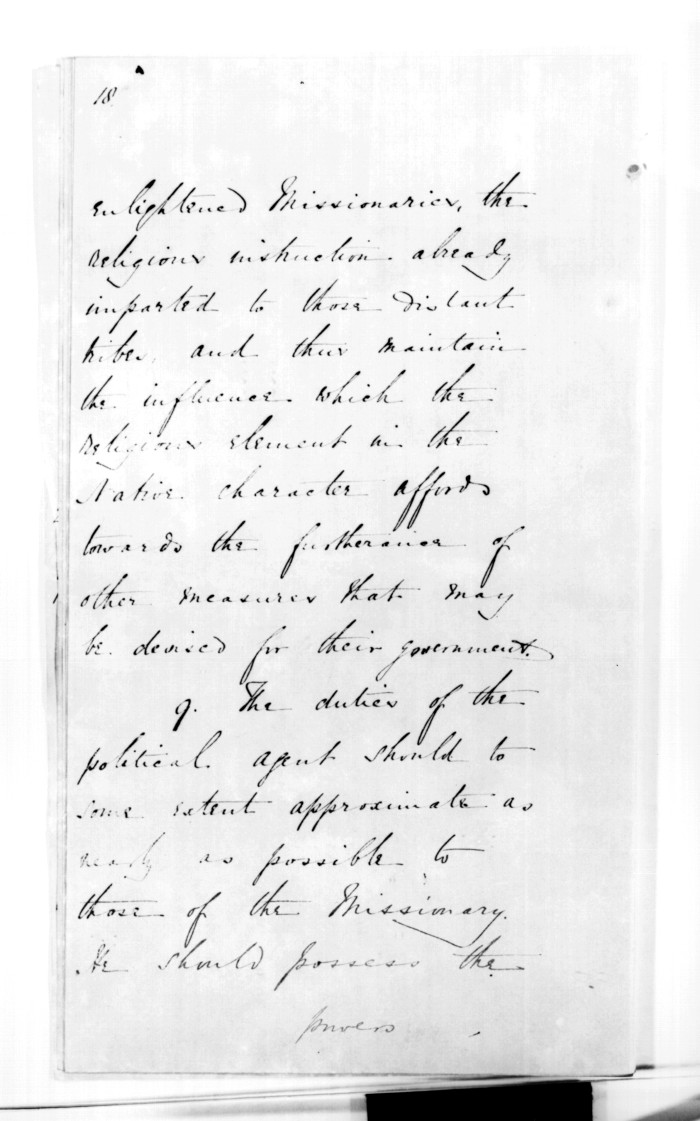 18
enlightened Missionaries, the
religious instruction already
imparted to those distant
tribes, and thus maintain
the influence which the
religious element in the
Native character affords
towards the furtherance of
other measures that may
be devised for their government.
9. The duties of the
political agent should to
some extent approximate as
nearly as possible to
those of the Missionary.
He should possess the
powers